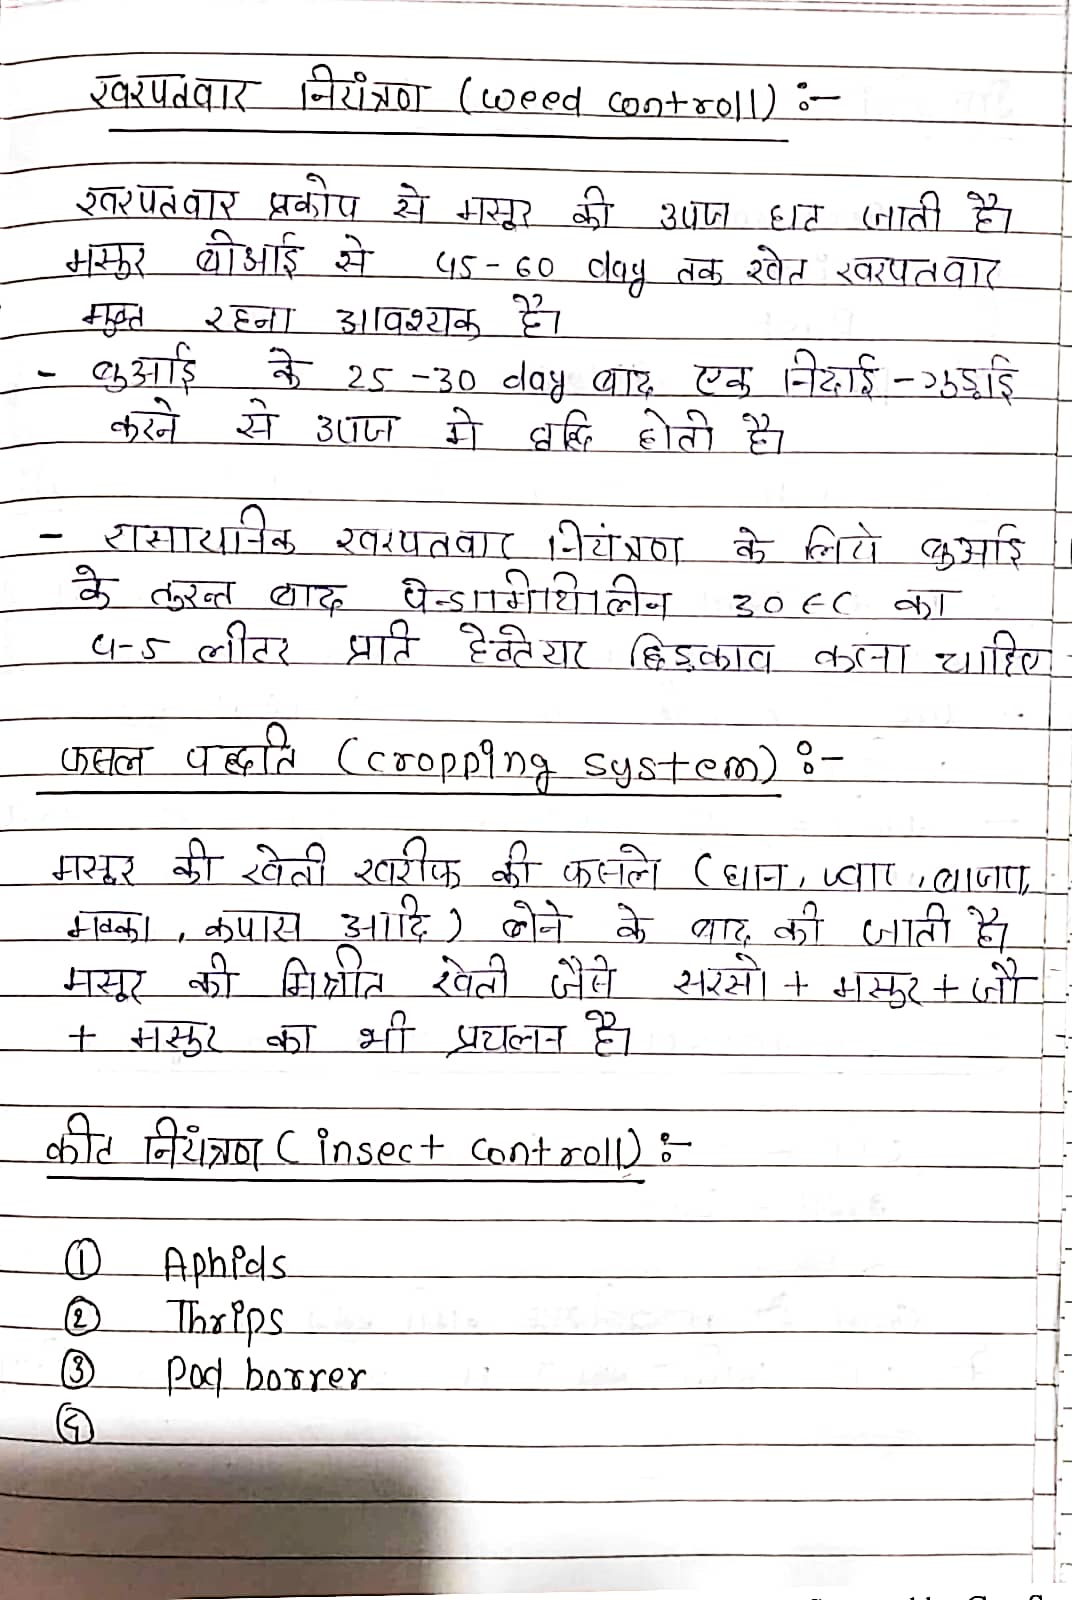 खरपतवार नियंत्रण (weed controll) :-
खरपतवार प्रकोप से मसूर की उपज घट जाती है।
मसुर बीआई से 45-60 day तक खेत खरपतवार
मुक्त रहना आवश्यक है।
- बुआई के 25-30 day बाद एक निदाई-गुड़ाई
करने से उपज मे वृद्धि होती है।
- रासायनिक खरपतवार नियंत्रण के लिये बुआई
के तुरन्त बाद पेन्डामिथिलीन 30 EC का
4-5 लीटर प्रति हेक्तेयर छिड़काव करना चाहिए
फसल पद्धति (cropping system) :-
मसूर की खेती खरीफ की फसले (धान, ज्वार, बाजरा,
मक्का, कपास आदि) लेने के बाद की जाती है।
मसूर की मिश्रीत खेती जैसे सरसो + मसुर + जौ
+ मसुर का भी प्रचलन है।
कीट नियंत्रण (insect controll) :-
① Aphids
② Thrips
③ Pod borrer
④